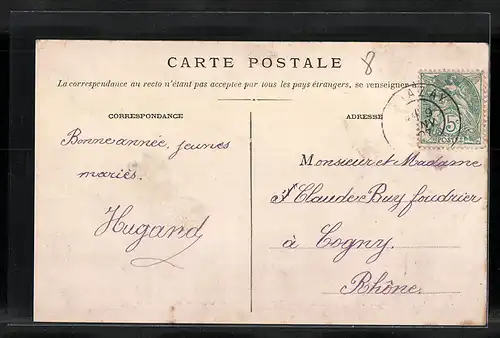 CARTE POSTALE
8
La correspondance au recto n'étant pas acceptée par tous les pays étrangers, se renseigner à
CORRESPONDANCE
ADRESSE
Bonne année, jeunes
mariés.
Hugand
Monsieur et Madame
Claude Buy foudrier
à Cogny.
Rhône.
5c